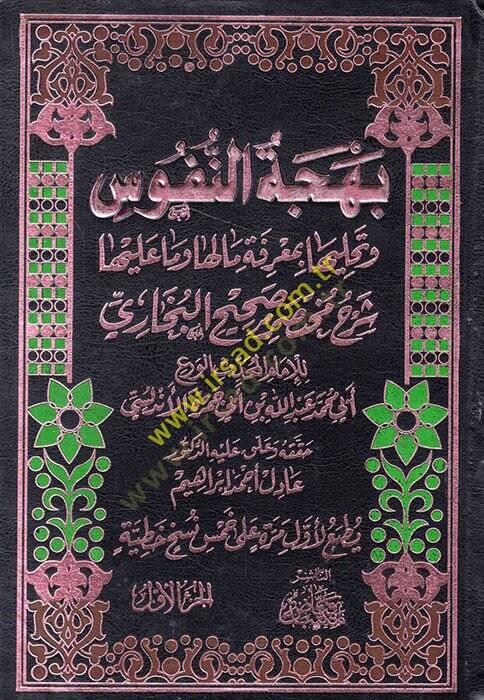 بَهْجَةُ النُّفُوسِ
وَتحَلِيهَا بِمَعْرِفَةِ مَا لهَا وَمَا عَلَيْهَا
شَرْحُ مُخْتَصَرِ صَحِيحِ البُخَارِيّ
لِلإمَامِ المحدث الورع
أبي محمد عبد الله بن أبي جمرة الأندلسي
حققه وعلق عليه الدكتور
عادل أحمد إبراهيم
يُطبع لأوّل مَرّة عَلى خَمْس نُسخ خَطيّة
النَّاشر
الجزء الأول
www.irsad.com.tr